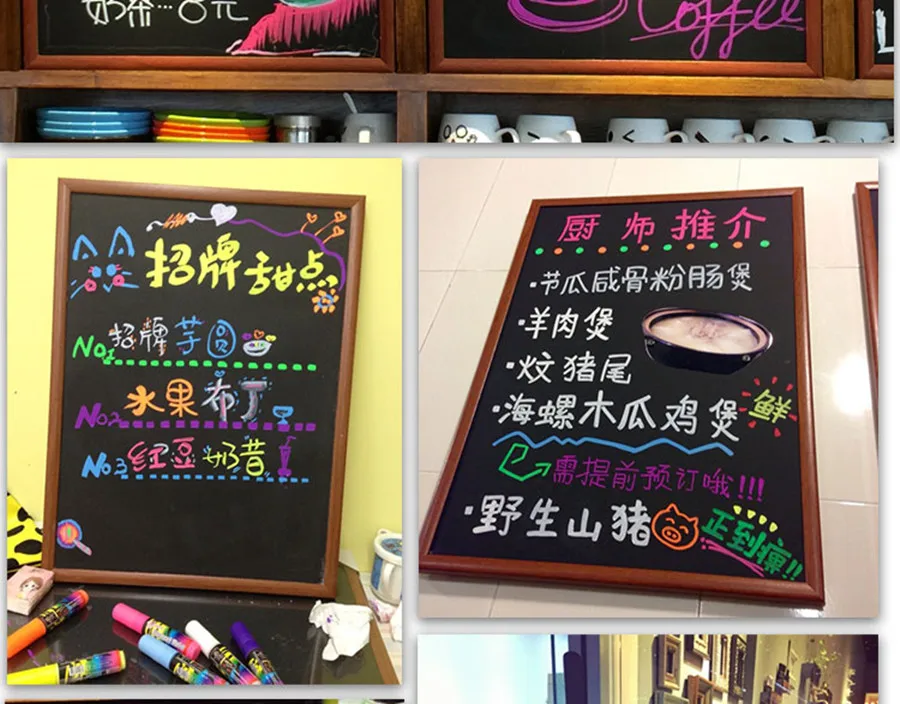 奶茶…8元
Coffee
招牌甜点
No1 招牌芋圆
No.2 水果布丁
No.3 红豆奶昔
厨师推介
·节瓜咸骨粉肠煲
·羊肉煲
·炆猪尾
·海螺木瓜鸡煲 鲜
需提前预订哦!!!
·野生山猪 正到癫!!